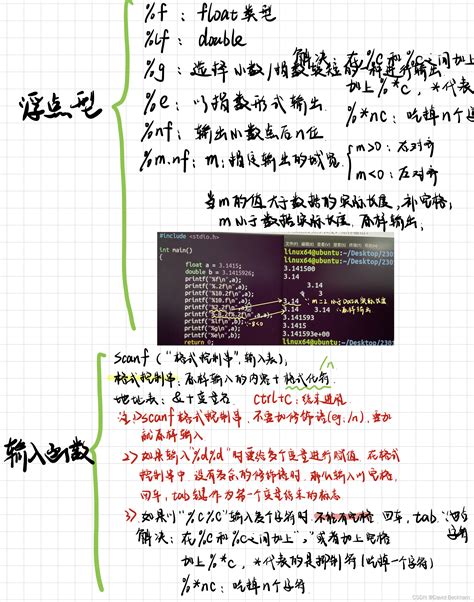 浮点型
%f : float类型
%lf : double
%g : 选择小数/指数较短的一种进行输出
%e : 以指数形式输出
%nf : 输出小数点后n位
%m.nf : m:指定输出的域宽
m>0 : 右对齐
m<0 : 左对齐
解决: 在%c和%c之间加上
加上%*c, *代表
%*nc : 吃掉n个
当m的值大于数据的实际长度,补空格;
m小于数据实际长度,原样输出;
#include <stdio.h>
int main()
{
float a = 3.1415;
double b = 3.1415926;
printf("%f\n",a);
printf("%.2f\n",a);
printf("%10.2f\n",a);
printf("%10.f\n",a);
printf("%2.2f\n",a);
printf("%lf\n",b);
printf("%g\n",a);
printf("%e\n",a);
return 0;
linux64@ubuntu:~/Desktop/230
linux64@ubuntu:~/Desktop/230
3.141500
3.14
3.14
3
3.14
3.14
3.141593
3.1415
3.141593e+00
linux64@ubuntu:~/Desktop/230
输入函数
scanf ("格式控制串",输入表);
格式控制串: 原样输入的内容+格式化符 /n
地址表: &+变量名 ctrl+C:结束进程
注:1>scanf格式控制串,不要加修饰语(eg:/n),要加
就原样输入
2>如果输入"%d%d"时要给多个变量进行赋值,在格式
控制串中,没有多余的修饰语时,那么输入以空格,
回车,tab键作为第一个变量结束的标志
3>如果以"%c%c"输入多个字符时 回车,tab
解决: 在%c和%c之间加上" "或者加上空格
加上%*c, *代表的是抑制符(吃掉一个字符)
%*nc: 吃掉n个字符
CSDN @David Beckham